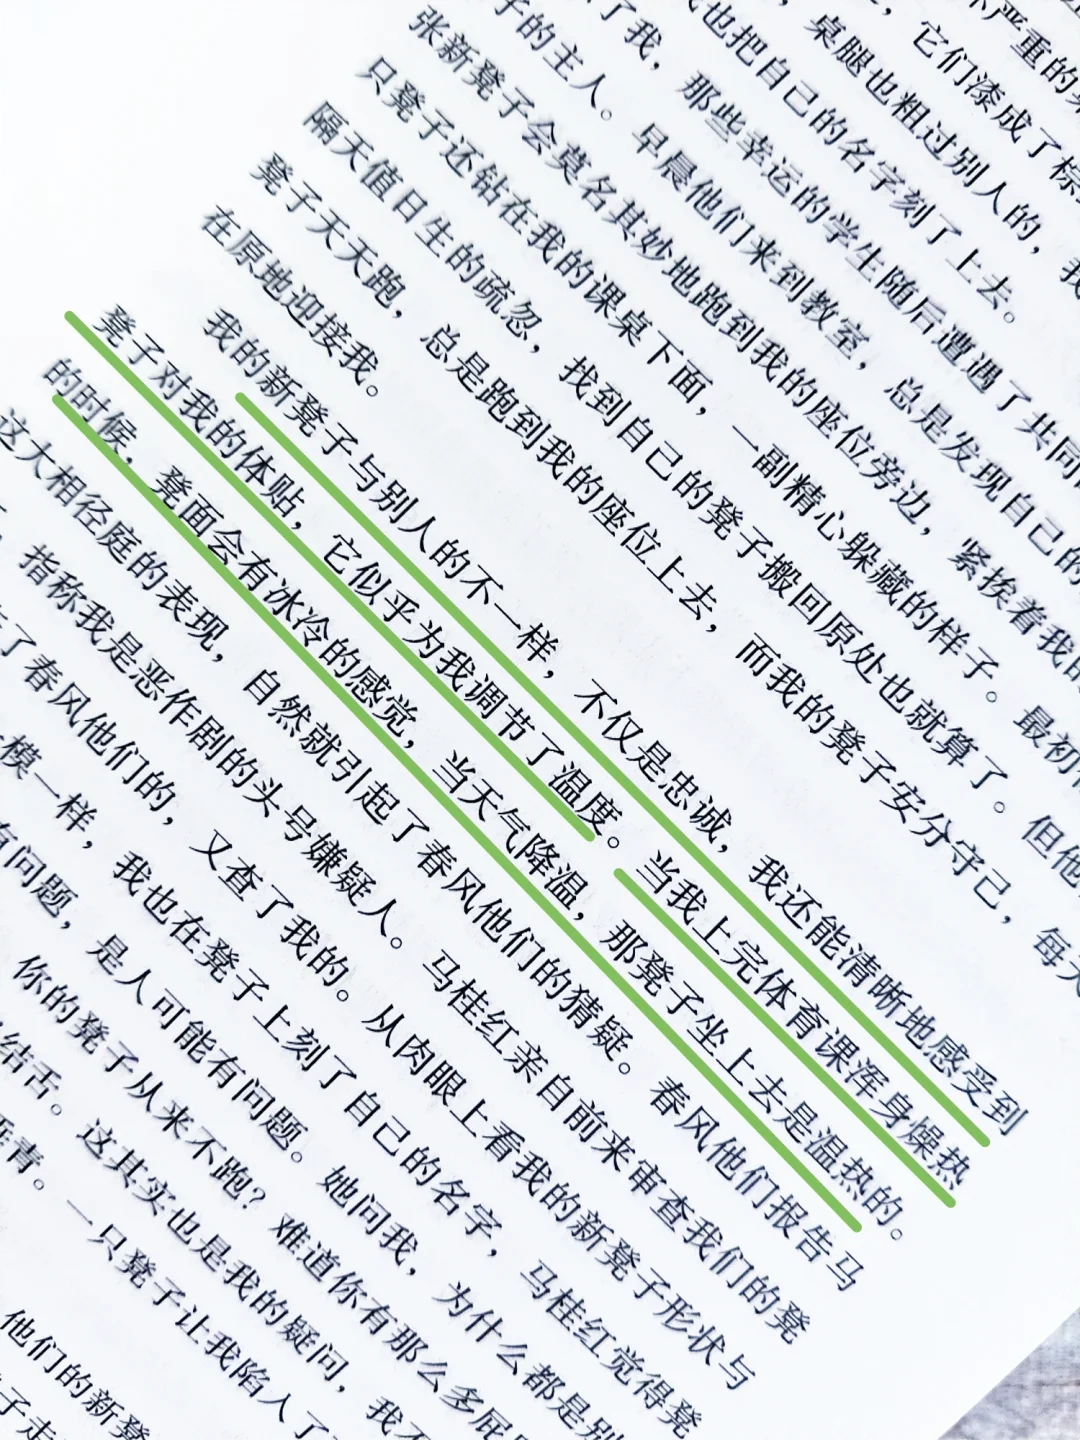 不严重的
，它们漆成了棕
，桌腿也粗过别人的，我
也把自己的名字刻了上去。
了我，那些幸运的学生随后遭遇了共同
子的主人。早晨他们来到教室，总是发现自己的
张新凳子会莫名其妙地跑到我的座位旁边，紧挨着我的
只凳子还钻在我的课桌下面，一副精心躲藏的样子。最初
隔天值日生的疏忽，找到自己的凳子搬回原处也就算了。但他
凳子天天跑，总是跑到我的座位上去，而我的凳子安分守己，每天
在原地迎接我。
我的新凳子与别人的不一样，不仅是忠诚，我还能清晰地感受到
凳子对我的体贴，它似乎为我调节了温度。当我上完体育课浑身燥热
的时候，凳面会有冰冷的感觉，当天气降温，那凳子坐上去是温热的。
这大相径庭的表现，自然就引起了春风他们的猜疑。春风他们报告马
，指称我是恶作剧的头号嫌疑人。马桂红亲自前来审查我们的凳
了春风他们的，又查了我的。从肉眼上看我的新凳子形状与
模一样，我也在凳子上刻了自己的名字，马桂红觉得凳
有问题，是人可能有问题。她问我，为什么都是别
你的凳子从来不跑？难道你有那么多屁
结舌。这其实也是我的疑问，我不
青。一只凳子让我陷入了
他们的新凳
子走